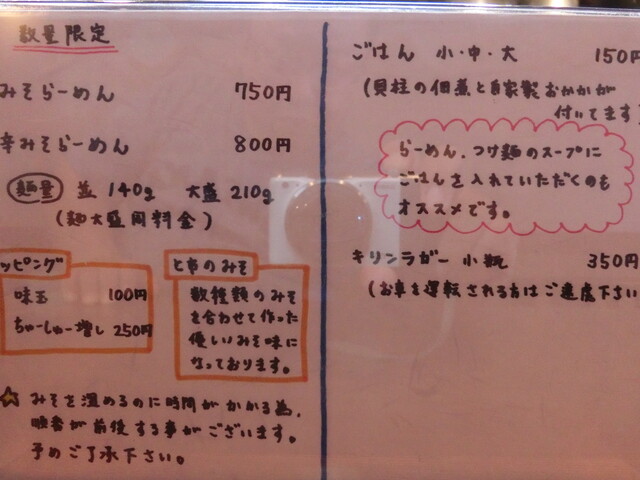 数量限定
みそらーめん 750円
辛みそらーめん 800円
麺量 並 140g 大盛 210g
(麺大盛同料金)
ッピング
味玉 100円
ちゃーしゅー増し 250円
のみそ
数種類のみそ
を合わせて作った
優しいみそ味に
なっております。
☆ みそを温めるのに時間がかかる為、
順番が前後する事がございます。
予めご了承下さい。
ごはん 小・中・大 150円
(貝柱の佃煮と自家製おかかが
付いてます)
らーめん、つけ麺のスープに
ごはんを入れていただくのも
オススメです。
キリンラガー 小瓶 350円
(お車を運転される方はご遠慮下さい